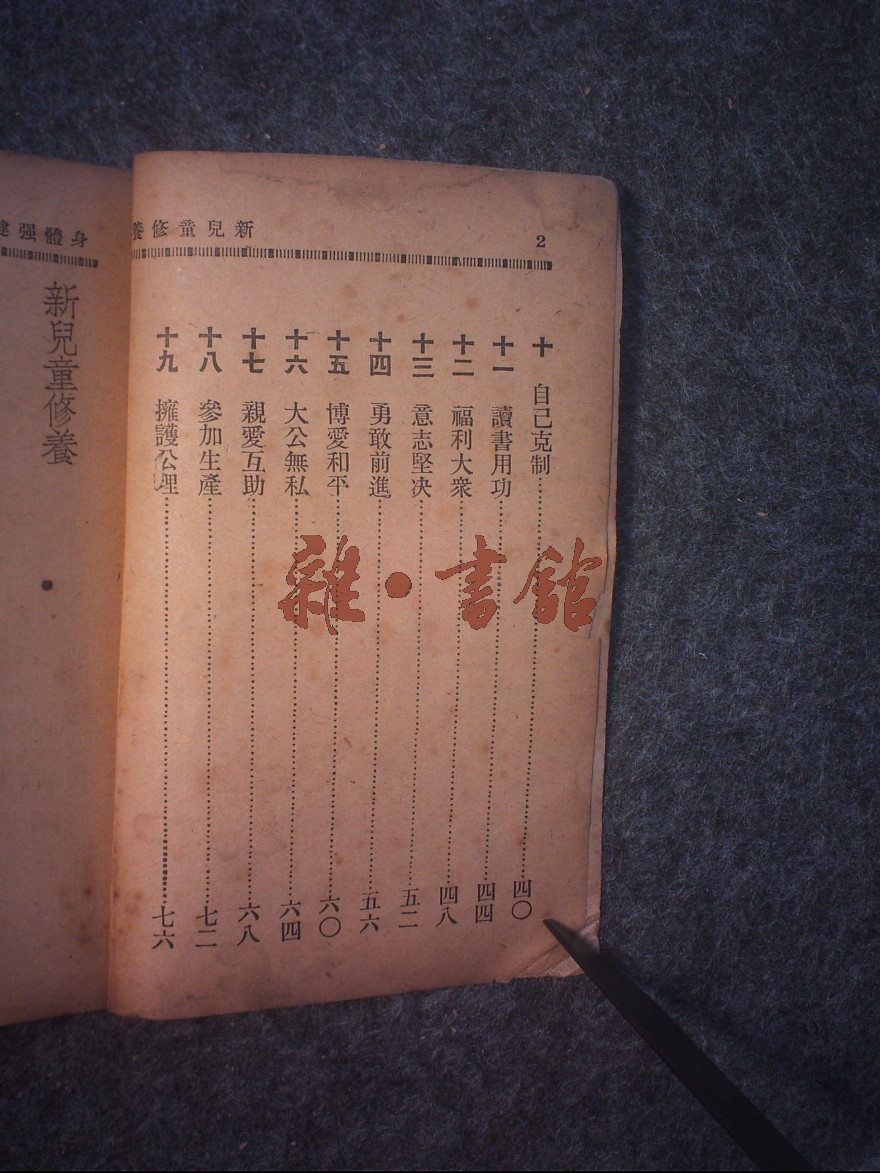 新兒童修養
2
十 自己克制 四〇
十一 讀書用功 四四
十二 福利大衆 四八
十三 意志堅决 五二
十四 勇敢前進 五六
十五 博愛和平 六〇
十六 大公無私 六四
十七 親愛互助 六八
十八 參加生產 七二
十九 擁護公理 七六
身體强建
新兒童修養
雜·書館